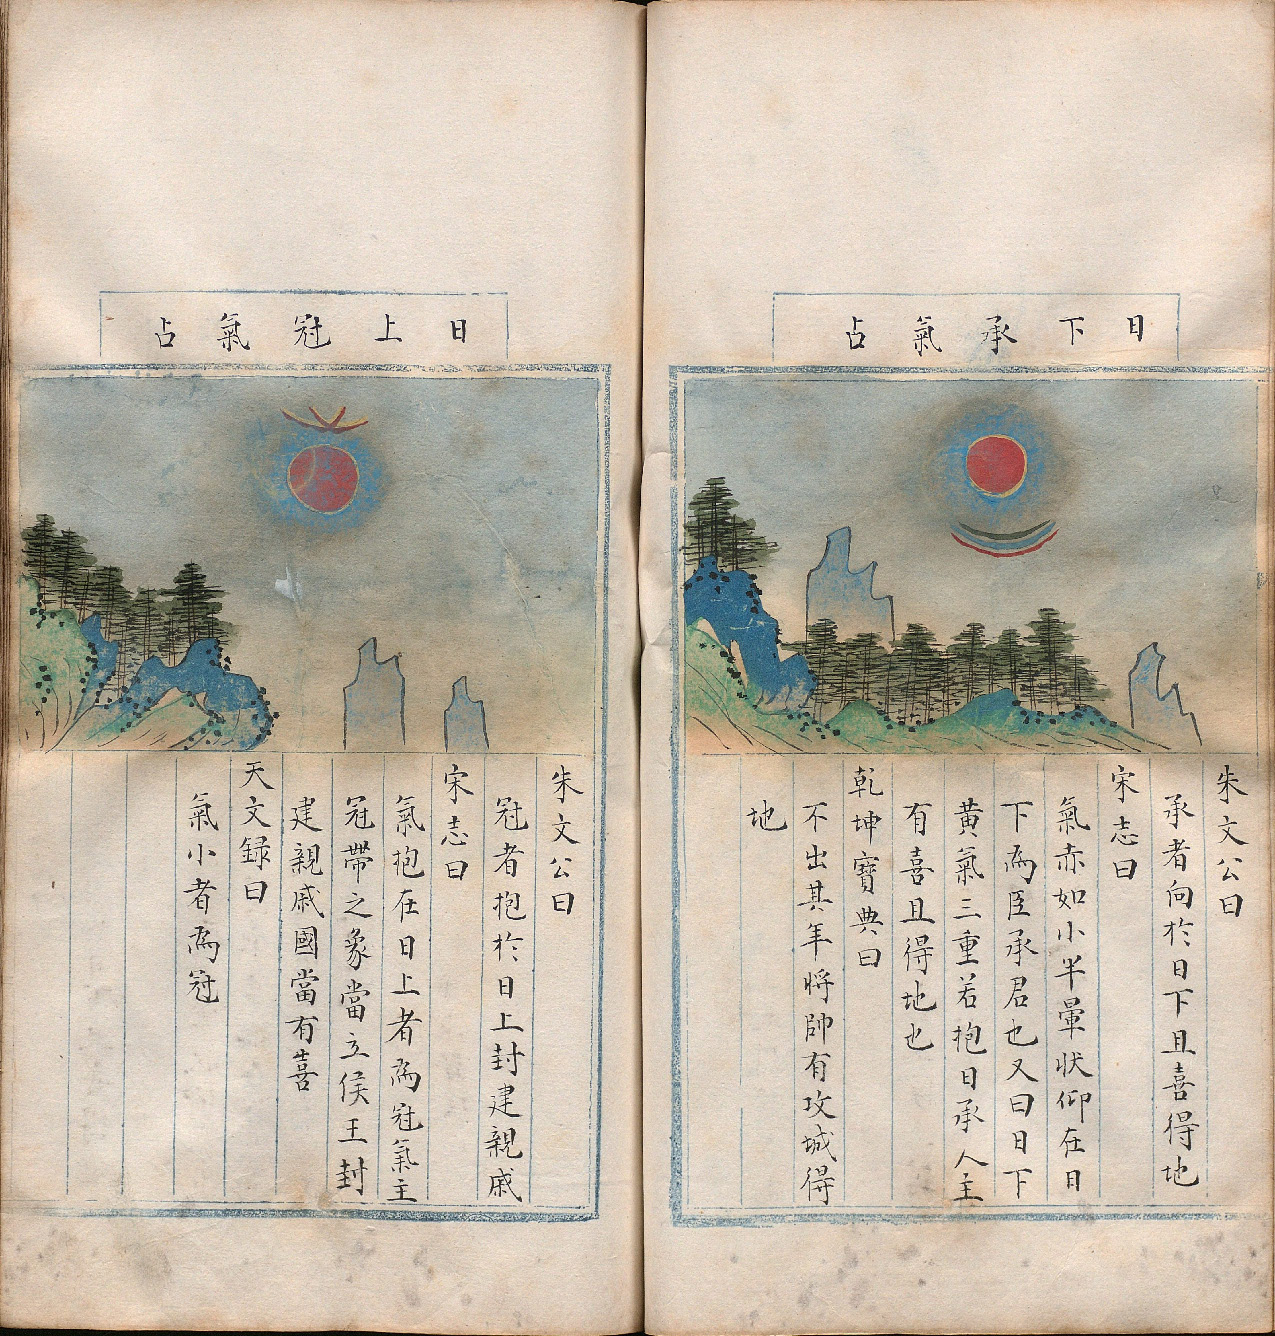 日下承氣占
朱文公曰
承者向於日下且喜得地
宋志曰
氣赤如小半暈狀仰在日
下為臣承君也又曰日下
黄氣三重若抱日承人主
有喜且得地也
乾坤寶典曰
不出其年將帥有攻城得
地
日上冠氣占
朱文公曰
冠者抱於日上封建親戚
宋志曰
氣抱在日上者為冠氣主
冠帶之象當立侯王封
建親戚國當有喜
天文録曰
氣小者為冠